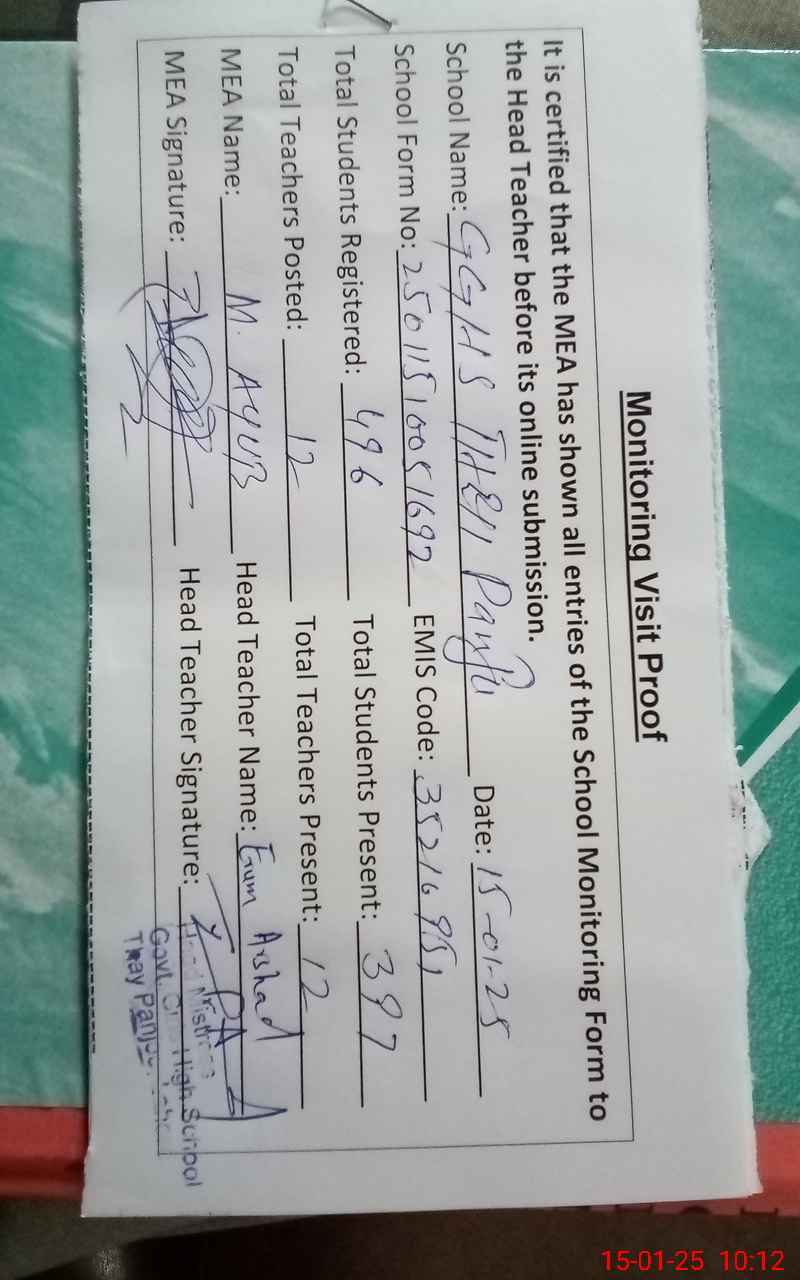 Monitoring Visit Proof
It is certified that the MEA has shown all entries of the School Monitoring Form to
the Head Teacher before its online submission.
School Name: GGHS THEH Panju Date: 15-01-25
School Form No: 25011510051692 EMIS Code: 35216951
Total Students Registered: 496 Total Students Present: 397
Total Teachers Posted: 12 Total Teachers Present: 12
MEA Name: M. AYUB Head Teacher Name: Erum Arshad
MEA Signature: Head Teacher Signature:
Head Mistress
Govt. Girls High School
Thay Panju
15-01-25 10:12